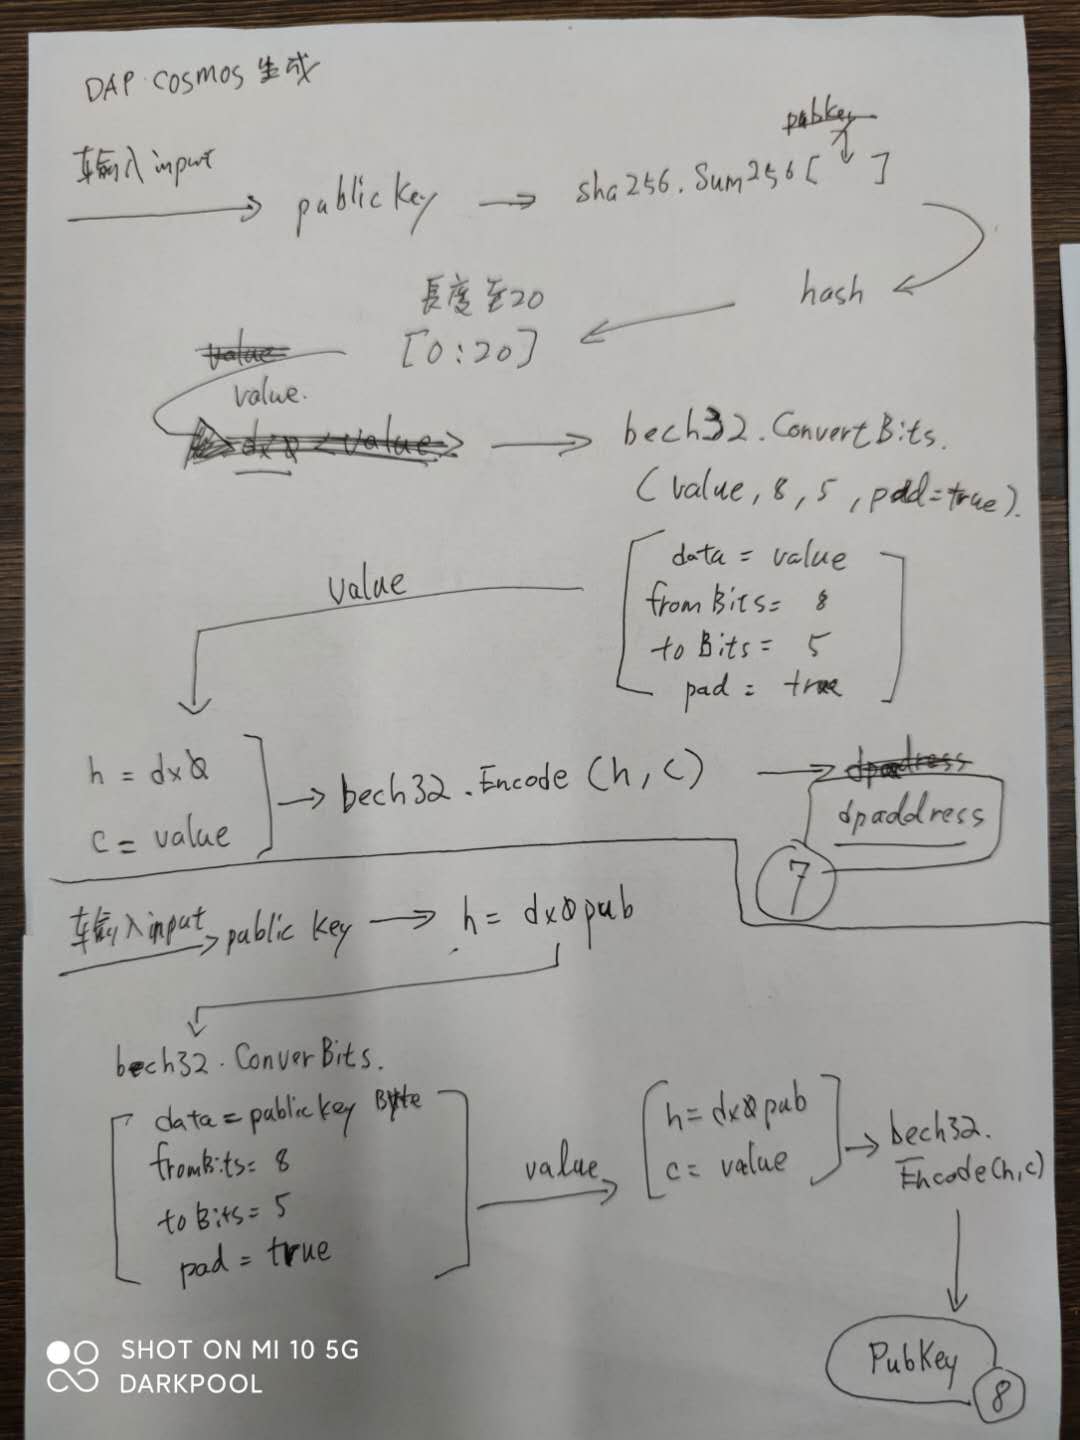 DAP COSMOS 生成
輸入 input
public key
sha256.Sum256[ ]
pubkey
hash
長度至20
[0:20]
value
value.
dx0 <value>
bech32.ConvertBits.
(value, 8, 5, pad=true).
data = value
from Bits= 8
to Bits = 5
pad = true
value
h = dx0
c = value
bech32.Encode (h, c)
dpaddress
7
輸入input
public key
h = dx0pub
bech32.ConverBits.
data = public key Byte
fromBits= 8
to Bits= 5
pad = true
value
h=dx0pub
c= value
bech32.
Encode(h,c)
PubKey
8
SHOT ON MI 10 5G
DARKPOOL